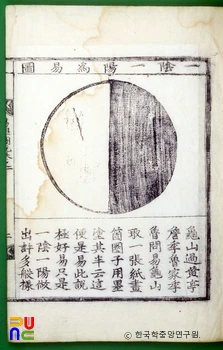 一陰一陽為易圖
龜山過黃亭
詹季魯家季
魯問易龜山
取一張紙畫
箇圈子用墨
塗其半云這
便是易此說
極好易只是
一陰一陽做
出許多般樣
© 한국학중앙연구원